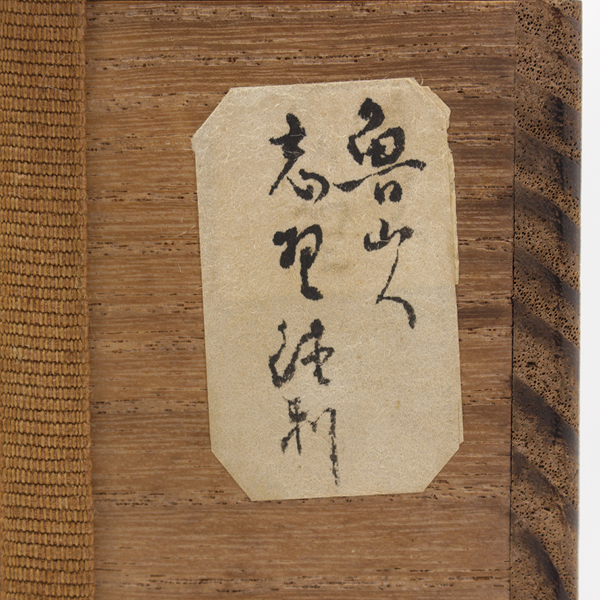 魯山人
志野徳利